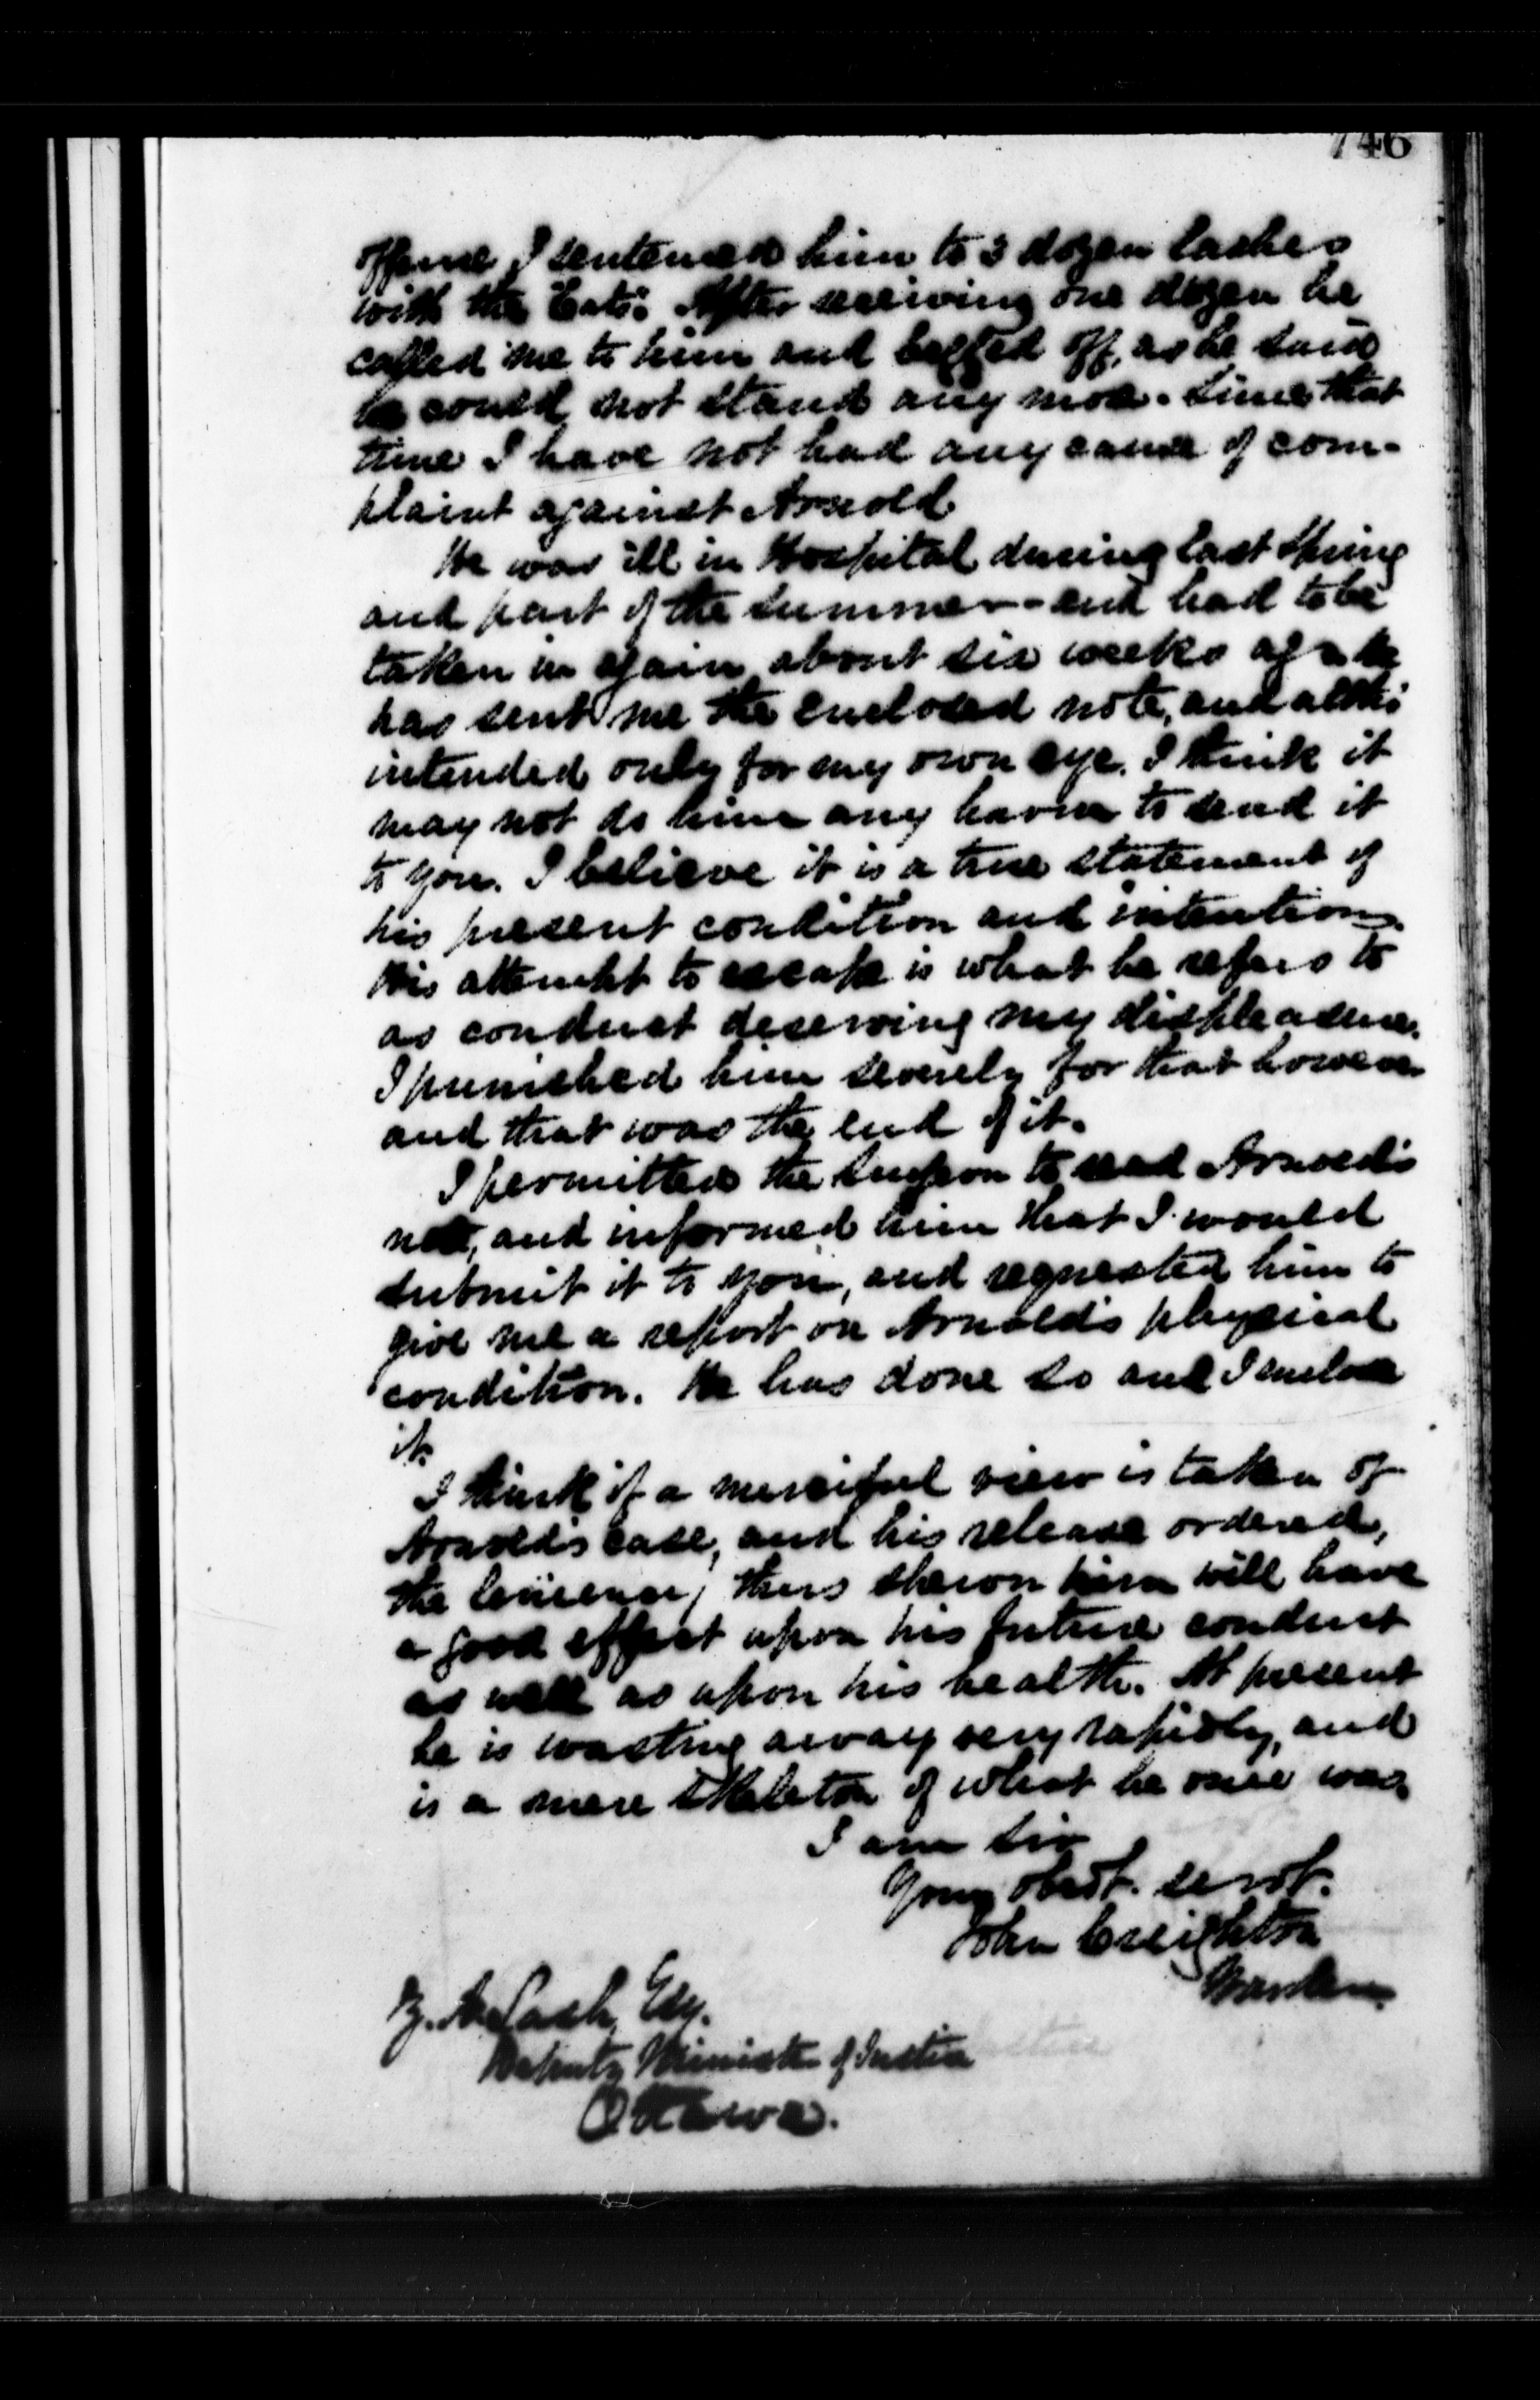 746
offence I sentenced him to 3 dozen lashes
with the "Cats". After receiving one dozen he
called me to him and begged off, as he said
he could not stand any more. Since that
time I have not had any cause of com-
plaint against Arnold
He was ill in Hospital during last Spring
and part of the Summer - and had to be
taken in again about six weeks ago. He
has sent me the enclosed note, and altho'
intended only for my own eye. I think it
may not do him any harm to send it
to you. I believe it is a true statement of
his present condition and intentions.
His attempt to escape is what he refers to
as conduct deserving my displeasure.
I punished him severely for that however
and that was the end of it.
I permitted the Surgeon to read Arnold's
note, and informed him that I would
submit it to you, and requested him to
give me a report on Arnold's physical
condition. He has done so and I enclose
it.
I think if a merciful view is taken of
Arnold's case, and his release ordered,
the leniency thus shewn him will have
a good effect upon his future conduct
as well as upon his health. At present
he is wasting away very rapidly, and
is a mere skeleton of what he once was.
I am Sir
Your obedt. servt.
John Creighton
Warden
Z. A. Lash, Esq.
Deputy Minister of Justice
Ottawa.